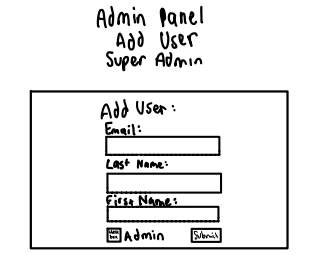 Admin Panel
Add User
Super Admin
Add User:
Email:
Last Name:
First Name:
Admin
Submit